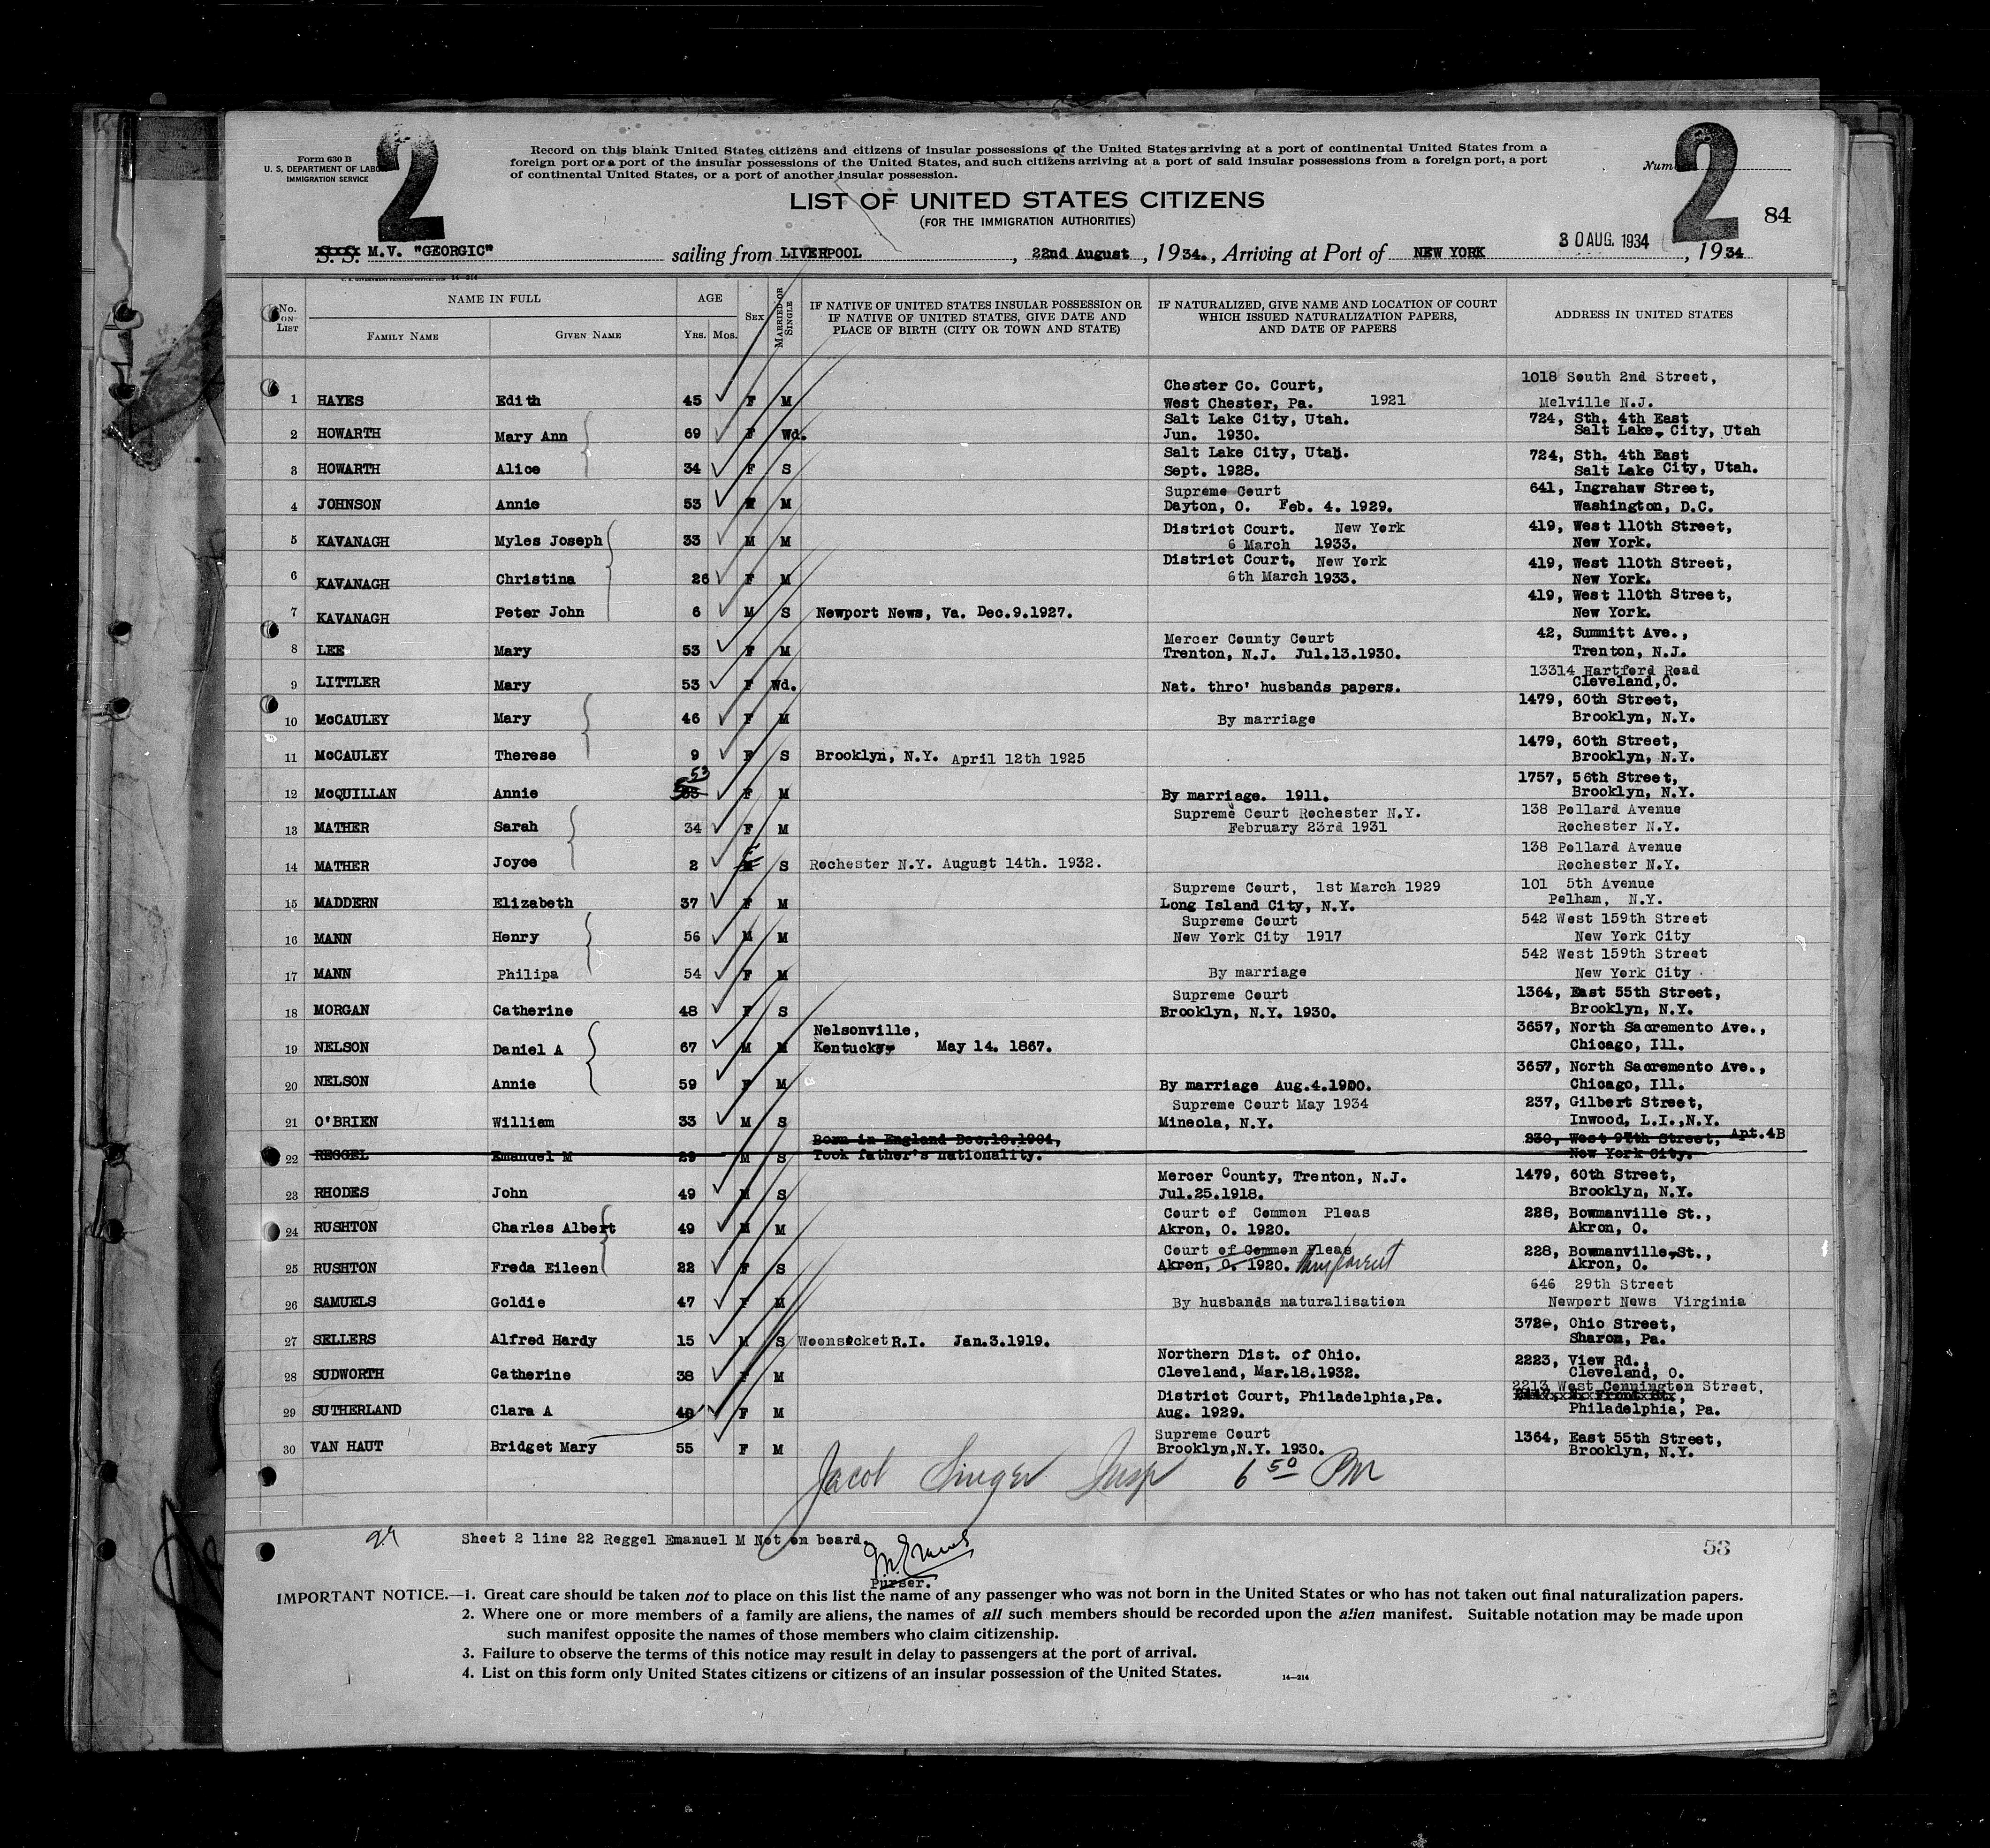 Form 630 B
U. S. DEPARTMENT OF LABOR
IMMIGRATION SERVICE
2
Record on this blank United States citizens and citizens of insular possessions of the United States arriving at a port of continental United States from a
foreign port or a port of the insular possessions of the United States, and such citizens arriving at a port of said insular possessions from a foreign port, a port
of continental United States, or a port of another insular possession.
2
84
LIST OF UNITED STATES CITIZENS
(FOR THE IMMIGRATION AUTHORITIES)
S. S. M.V. "GEORGIC" sailing from LIVERPOOL, 22nd August, 1934., Arriving at Port of NEW YORK 30 AUG. 1934, 1934
No. ON LIST
NAME IN FULL
FAMILY NAME GIVEN NAME
AGE
YRS. MOS.
SEX
MARRIED OR SINGLE
IF NATIVE OF UNITED STATES INSULAR POSSESSION OR
IF NATIVE OF UNITED STATES, GIVE DATE AND
PLACE OF BIRTH (CITY OR TOWN AND STATE)
IF NATURALIZED, GIVE NAME AND LOCATION OF COURT
WHICH ISSUED NATURALIZATION PAPERS,
AND DATE OF PAPERS
ADDRESS IN UNITED STATES
Chester Co. Court, 1018 South 2nd Street,
1 HAYES Edith 45 F M West Chester, Pa. 1921 Melville N.J.
Salt Lake City, Utah. 724, Sth. 4th East
2 HOWARTH Mary Ann 69 F Wd. Jun. 1930. Salt Lake, City, Utah
Salt Lake City, Utah. 724, Sth. 4th East
3 HOWARTH Alice 34 F S Sept. 1928. Salt Lake City, Utah.
Supreme Court 641, Ingrahaw Street,
4 JOHNSON Annie 53 F M Dayton, O. Feb. 4. 1929. Washington, D.C.
District Court. New York 419, West 110th Street,
5 KAVANAGH Myles Joseph 33 M M 6 March 1933. New York.
District Court, New York 419, West 110th Street,
6 KAVANAGH Christina 26 F M 6th March 1933. New York.
419, West 110th Street,
7 KAVANAGH Peter John 6 M S Newport News, Va. Dec.9.1927. New York.
Mercer County Court 42, Summitt Ave.,
8 LEE Mary 53 F M Trenton, N.J. Jul.13.1930. Trenton, N.J.
13314 Hartford Road
9 LITTLER Mary 53 F Wd. Nat. thro' husbands papers. Cleveland,O.
1479, 60th Street,
10 McCAULEY Mary 46 F M By marriage Brooklyn, N.Y.
1479, 60th Street,
11 McCAULEY Therese 9 F S Brooklyn, N.Y. April 12th 1925 Brooklyn, N.Y.
53 1757, 56th Street,
12 McQUILLAN Annie F M By marriage. 1911. Brooklyn, N.Y.
Supreme Court Rochester N.Y. 138 Pollard Avenue
13 MATHER Sarah 34 F M February 23rd 1931 Rochester N.Y.
138 Pollard Avenue
14 MATHER Joyce 2 F S Rochester N.Y. August 14th. 1932. Rochester N.Y.
Supreme Court, 1st March 1929 101 5th Avenue
15 MADDERN Elizabeth 37 F M Long Island City, N.Y. Pelham, N.Y.
Supreme Court 542 West 159th Street
16 MANN Henry 56 M M New York City 1917 New York City
542 West 159th Street
17 MANN Philipa 54 F M By marriage New York City
Supreme Court 1364, East 55th Street,
18 MORGAN Catherine 48 F S Brooklyn, N.Y. 1930. Brooklyn, N.Y.
Nelsonville, 3657, North Sacremento Ave.,
19 NELSON Daniel A 67 M M Kentucky, May 14. 1867. Chicago, Ill.
3657, North Sacremento Ave.,
20 NELSON Annie 59 F M By marriage Aug.4.1900. Chicago, Ill.
Supreme Court May 1934 237, Gilbert Street,
21 O'BRIEN William 33 M S Mineola, N.Y. Inwood, L.I.,N.Y.
Born in England Dec.10.1904, 230, West 97th Street, Apt.4B
22 REGGEL Emanuel M 29 M S Took father's nationality. New York City.
Mercer County, Trenton, N.J. 1479, 60th Street,
23 RHODES John 49 M S Jul.25.1918. Brooklyn, N.Y.
Court of Common Pleas 228, Bowmanville St.,
24 RUSHTON Charles Albert 49 M M Akron, O. 1920. Akron, O.
Court of Common Pleas 228, Bowmanville,St.,
25 RUSHTON Freda Eileen 22 F S Akron, O. 1920. Akron, O.
646 29th Street
26 SAMUELS Goldie 47 F M By husbands naturalisation Newport News Virginia
372, Ohio Street,
27 SELLERS Alfred Hardy 15 M S Woonsocket R.I. Jan.3.1919. Sharon, Pa.
Northern Dist. of Ohio. 2223, View Rd.,
28 SUDWORTH Catherine 38 F M Cleveland, Mar.18.1932. Cleveland, O.
2213 West Connington Street,
District Court, Philadelphia,Pa.
29 SUTHERLAND Clara A 40 F M Aug. 1929. Philadelphia, Pa.
Supreme Court 1364, East 55th Street,
30 VAN HAUT Bridget Mary 55 F M Brooklyn,N.Y. 1930. Brooklyn, N.Y.
Jacob Singer Insp 6 50 PM
29 Sheet 2 line 22 Reggel Emanuel M Not on board.
Purser.
53
IMPORTANT NOTICE.—1. Great care should be taken not to place on this list the name of any passenger who was not born in the United States or who has not taken out final naturalization papers.
2. Where one or more members of a family are aliens, the names of all such members should be recorded upon the alien manifest. Suitable notation may be made upon
such manifest opposite the names of those members who claim citizenship.
3. Failure to observe the terms of this notice may result in delay to passengers at the port of arrival.
4. List on this form only United States citizens or citizens of an insular possession of the United States.
14—214